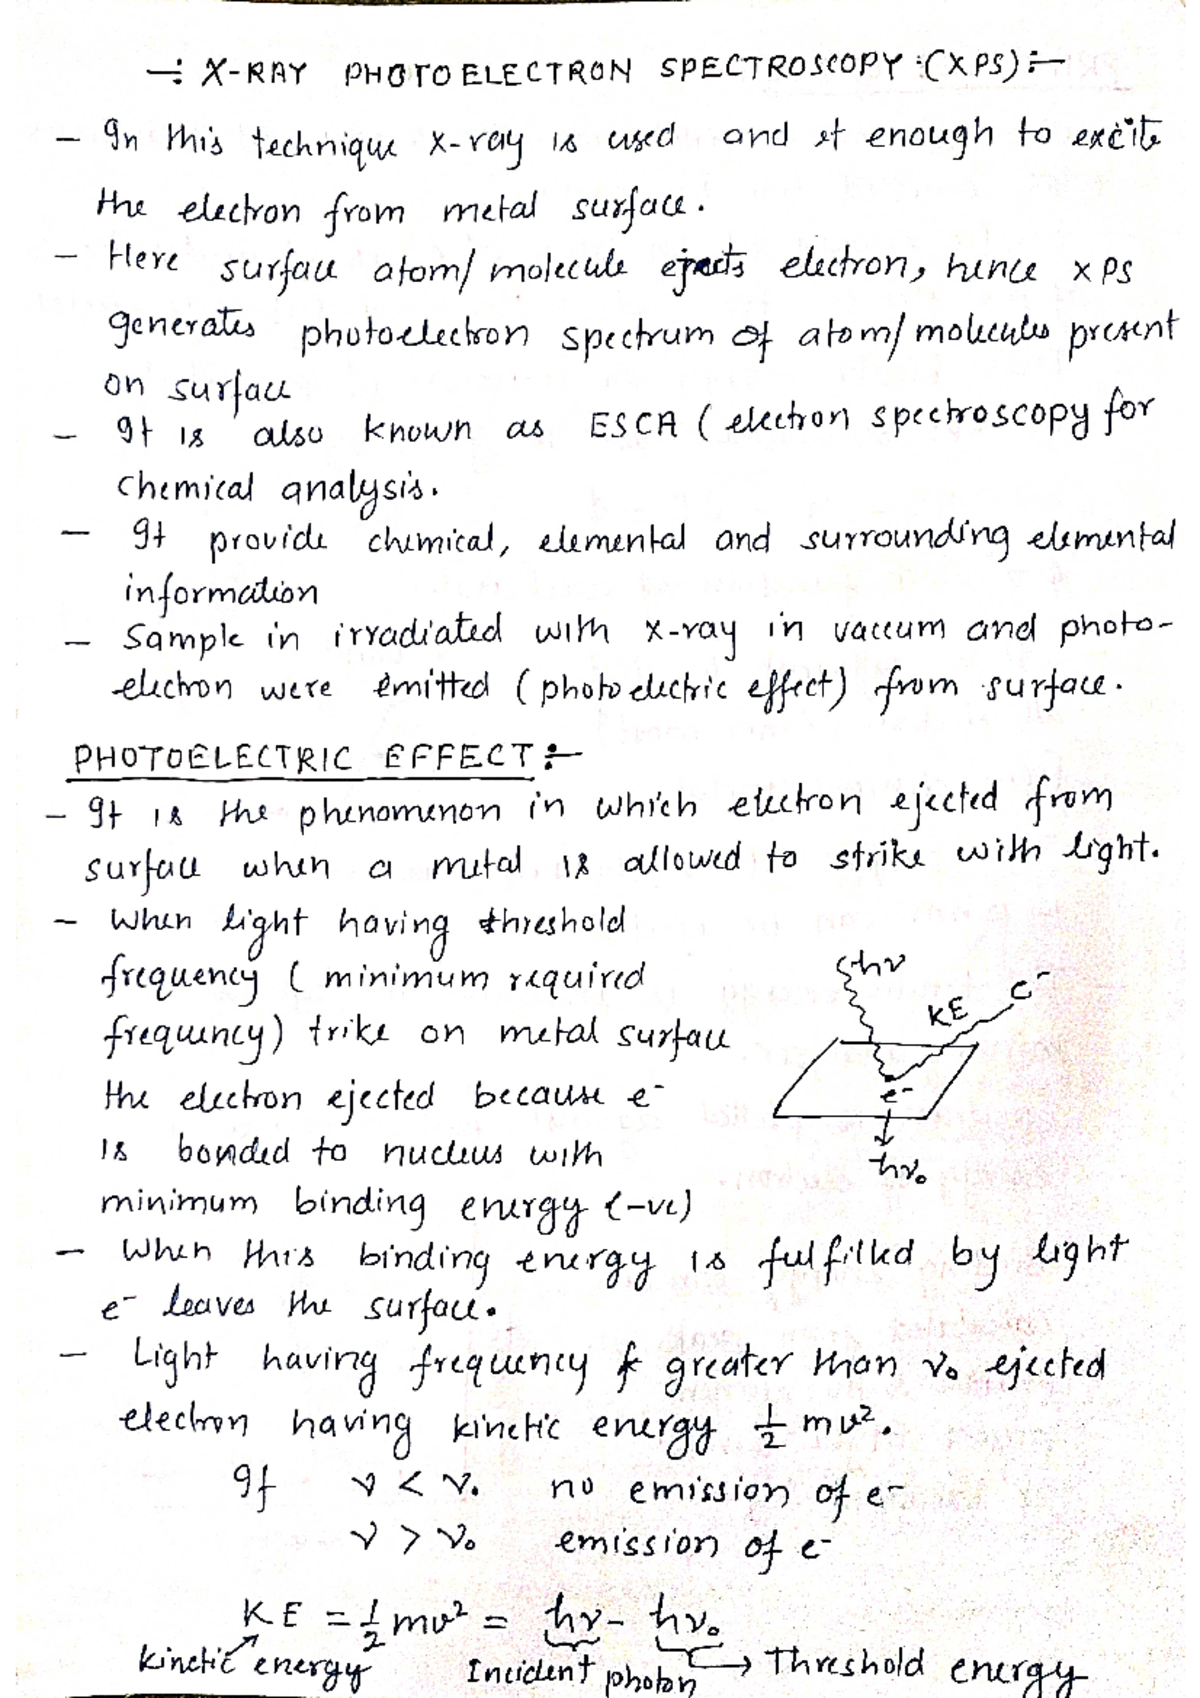 -: X-RAY PHOTOELECTRON SPECTROSCOPY :(XPS):-
- In this technique X-ray is used and it enough to excite
the electron from metal surface.
- Here surface atom/molecule ejects electron, hence XPS
generates photoelectron spectrum of atom/molecules present
on surface
- It is also known as ESCA (electron spectroscopy for
chemical analysis.
- It provide chemical, elemental and surrounding elemental
information
- Sample in irradiated with x-ray in vaccum and photo-
electron were emitted (photoelectric effect) from surface.
PHOTOELECTRIC EFFECT:-
- It is the phenomenon in which electron ejected from
surface when a metal is allowed to strike with light.
- When light having threshold
frequency ( minimum required
frequency) trike on metal surface
the electron ejected because e-
is bonded to nucleus with
minimum binding energy (-ve)
hν
KE e-
e-
hν₀
- When this binding energy is fulfilled by light
e- leaves the surface.
- Light having frequency greater than ν₀ ejected
electron having kinetic energy ½ mv².
If ν < ν₀ no emission of e-
ν > ν₀ emission of e-
KE = ½ mv² = hν - hν₀
kinetic energy Incident photon → Threshold energy